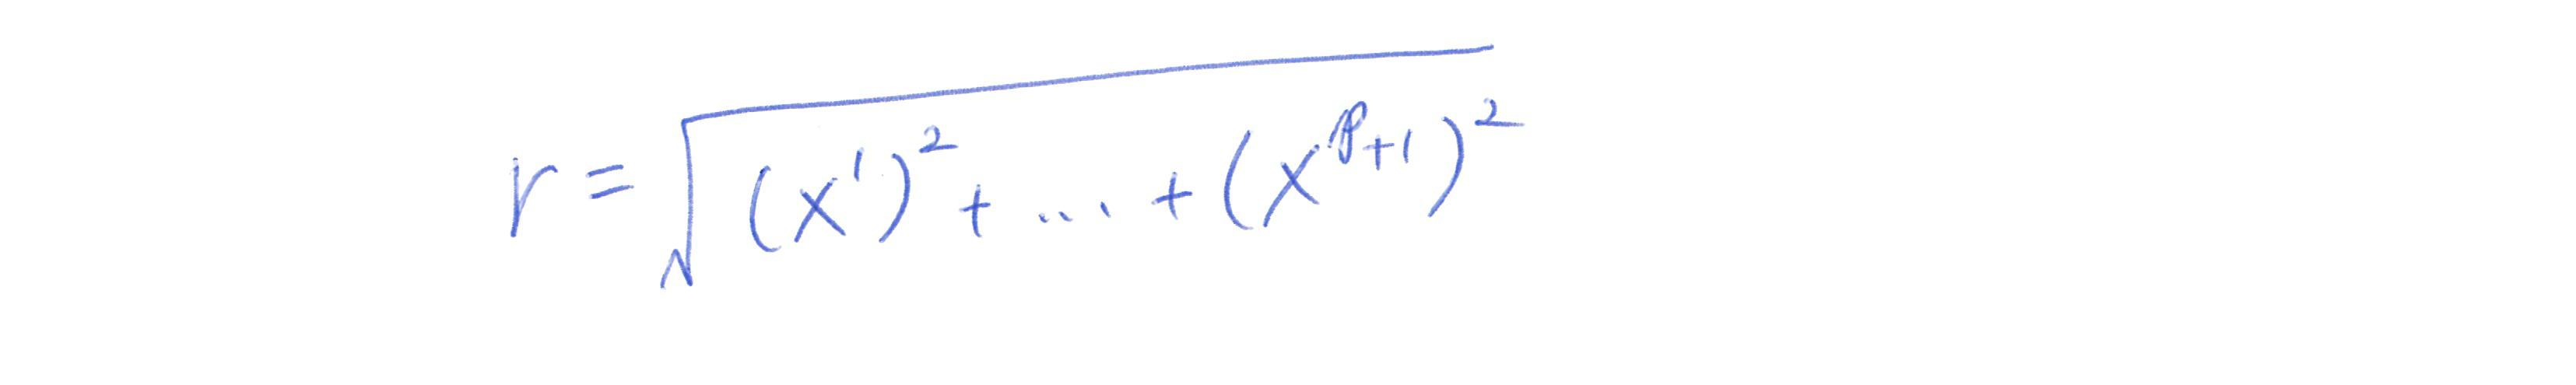 r = √((x¹)² + ... + (x^{p+1})²)